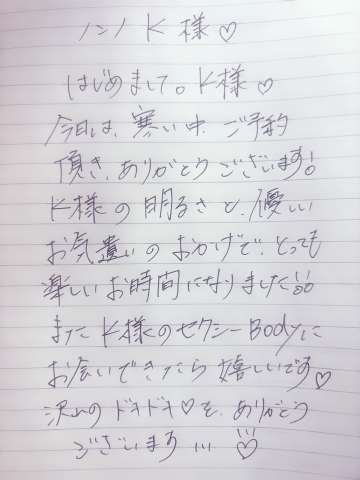 ノンノ K様♡
はじめまして。K様♡
今日は、寒い中、ご予約
頂き、ありがとうございます!
K様の明るさと、優しい
お気遣いのおかげで、とっても
楽しいお時間になりました!!
また K様のセクシーBodyに
お会いできたら嬉しいです♡
沢山のドキドキ♡を、ありがとう
ございます…♡